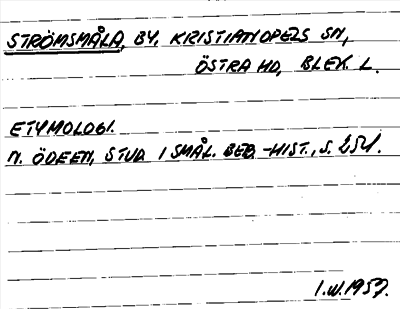 STRÖMSMÅLA, BY, KRISTIANOPELS SN,
ÖSTRA HD, BLEK. L.
ETYMOLOGI.
N. ÖDEEN, STUD. I SMÅL. BEB.-HIST., S. 254.
I.W. 1957.